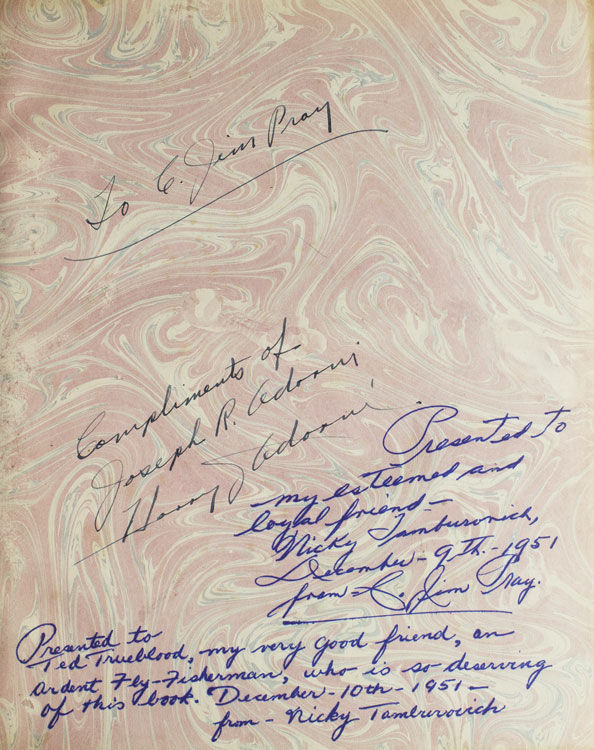 To C. Jim Pray
Compliments of
Joseph R. Adorni
Harry J Adorni
Presented to
my esteemed and
loyal friend-
Nicky Tambursovich,
December-9th-1951
from-C. Jim Pray.
Presented to
Ted Trueblood, my very good friend, an
ardent Fly-Fisherman, who is so deserving
of this book. December-10th-1951-
from-Nicky